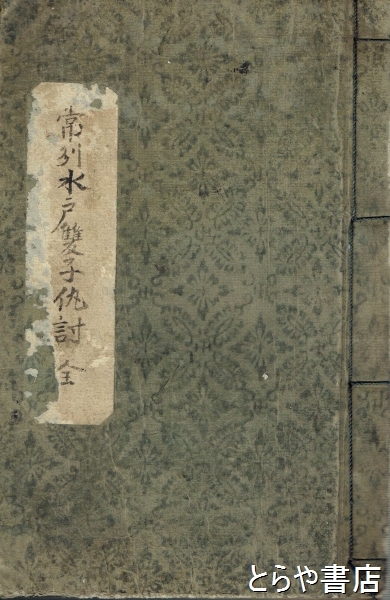 常州水戸雙子仇討 全
とらや書店